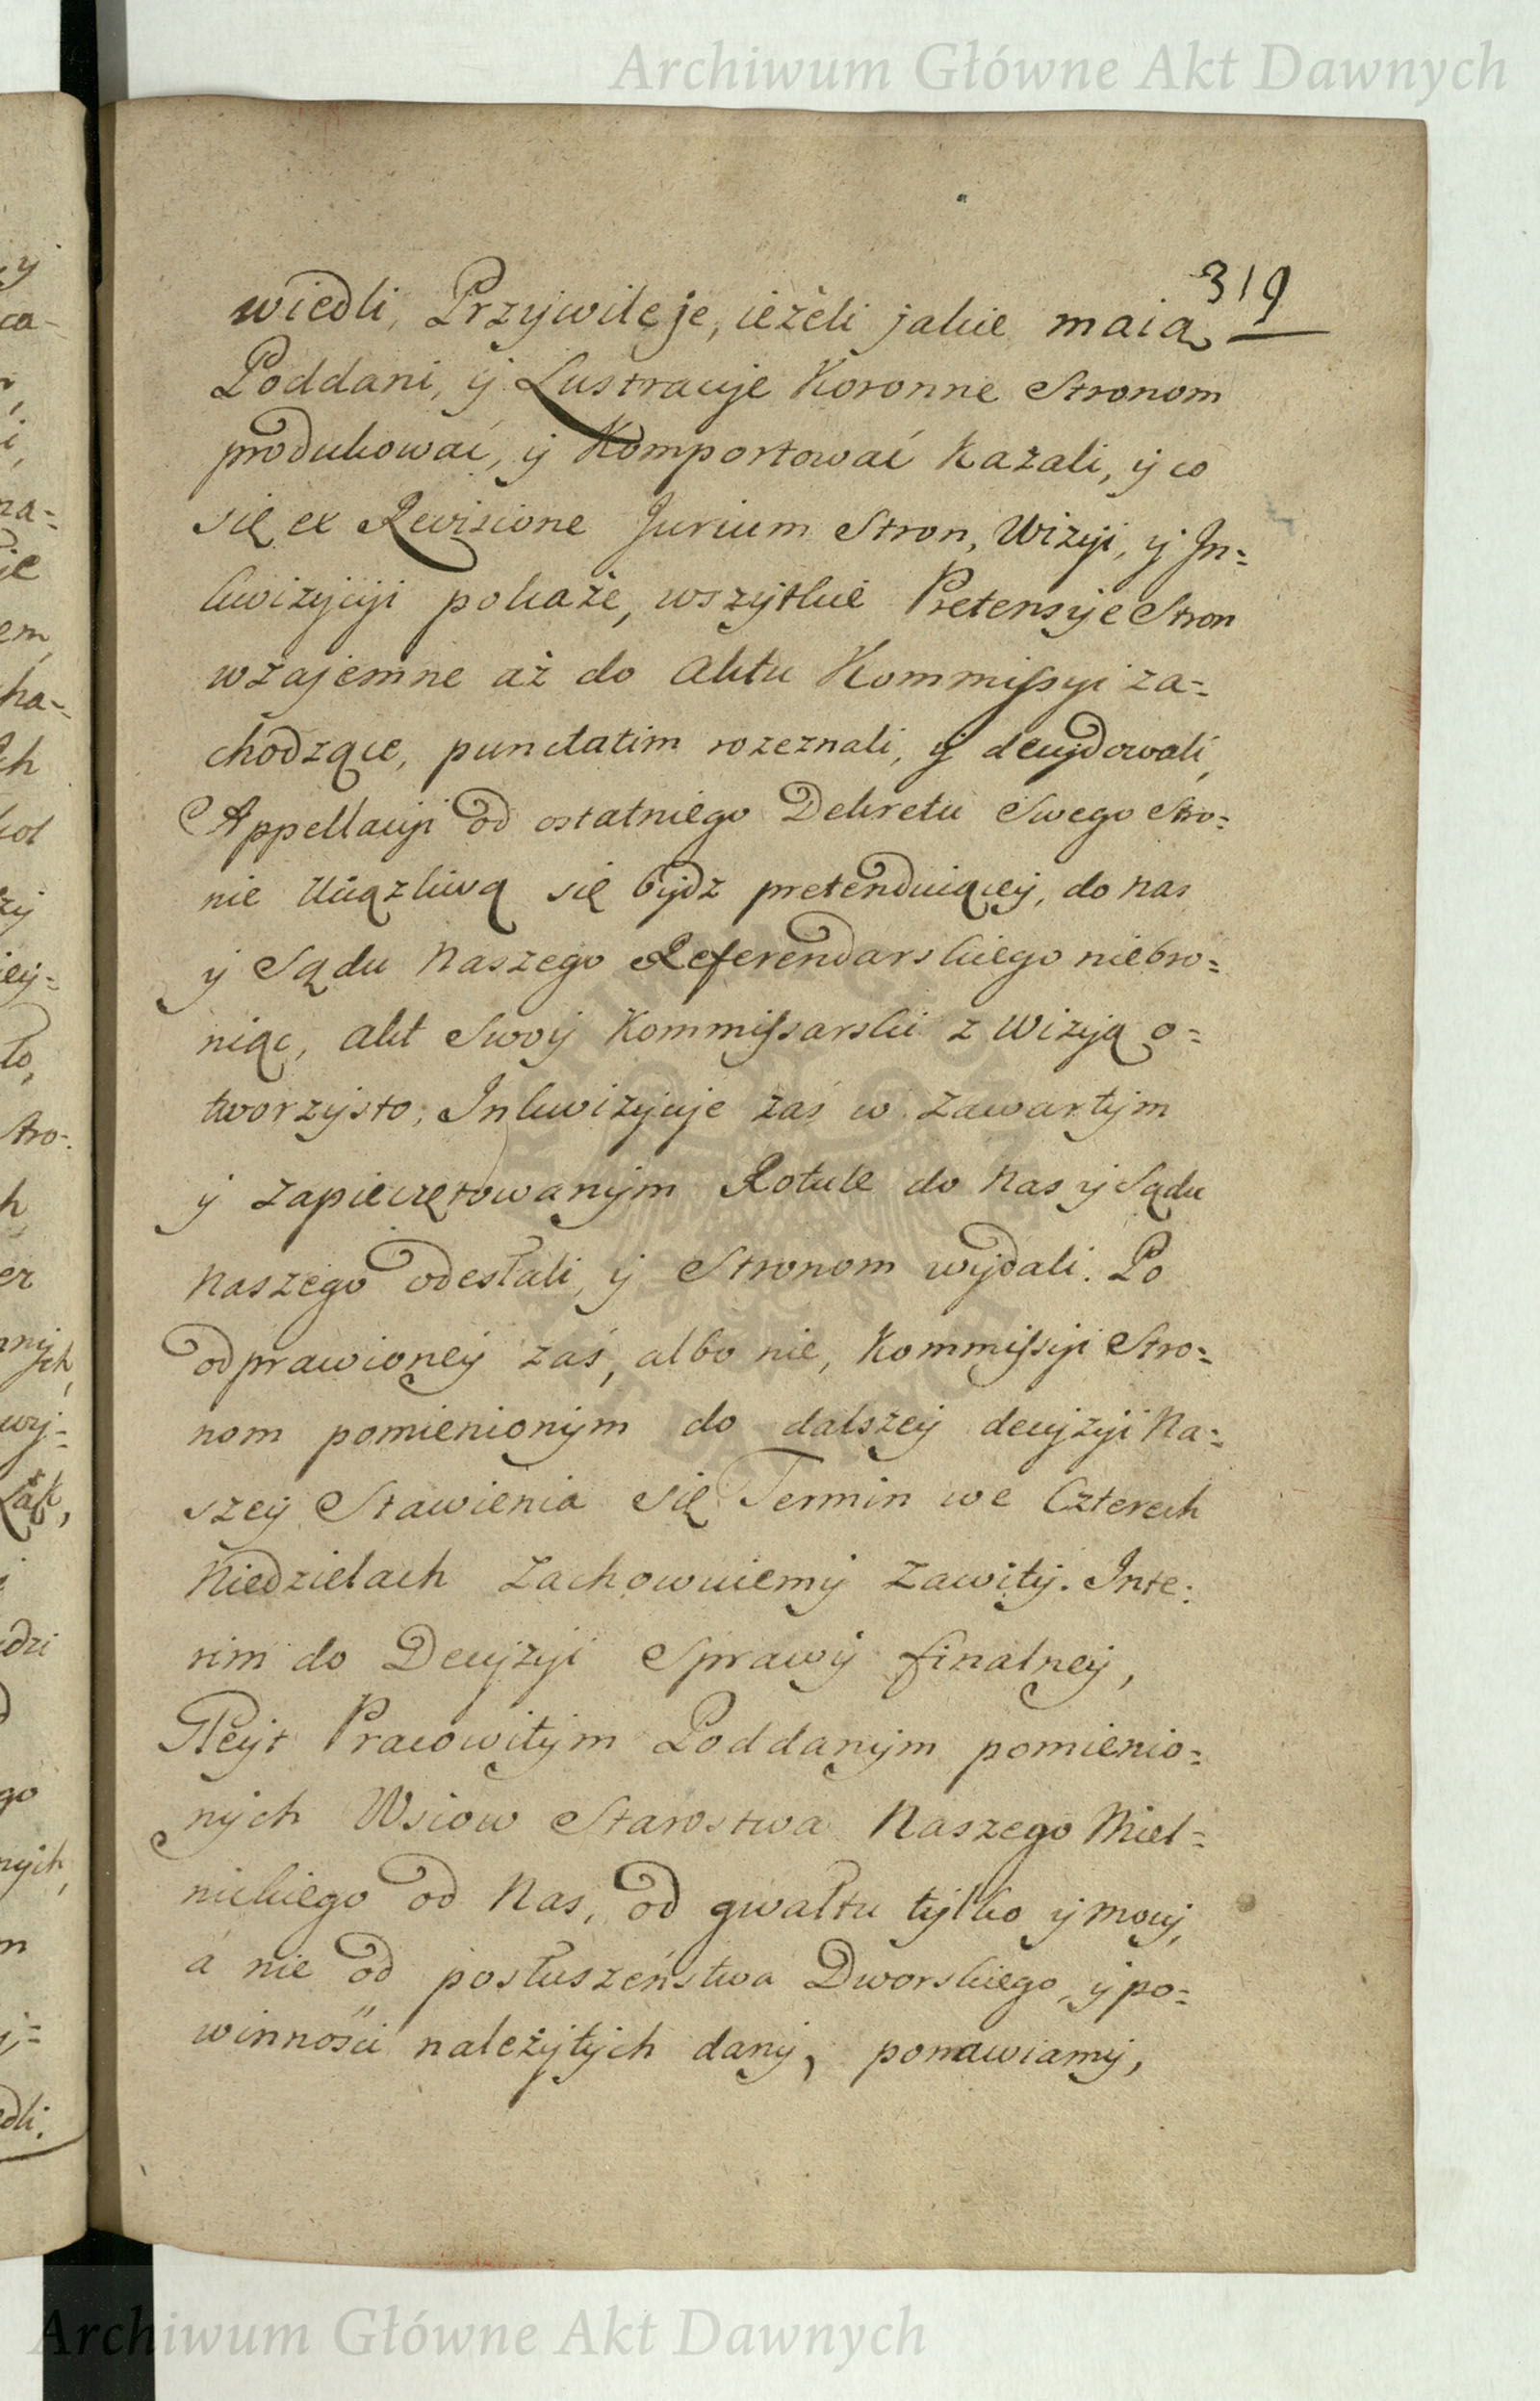 Archiwum Główne Akt Dawnych
319
wiedli, Przywileje, ieżeli jakie maią
Poddani, ÿ Lustracÿe Koronne Stronom
produkować, ÿ Komportować Kazali, ÿ co
się ex Revisione Jurium Stron, Wizÿi, ÿ In=
kwizÿcÿi pokaże, wszÿtkie Pretensÿe Stron
wzajemne aż do Aktu Kommissÿi za=
chodzące, punctatim rozeznali, ÿ decÿdowali,
Appellacÿi od ostatniego Dekretu Swego Stro=
nie Uciążliwą się bÿdz pretenduiąceÿ, do Nas
ÿ Sądu Naszego Referendarskiego niebro=
niąc, Akt Swoÿ Kommissarski z Wizÿą o=
tworzÿsto, Inkwizÿcÿe zaś w zawartÿm
ÿ zapieczętowanÿm Rotule do Nas ÿ Sądu
Naszego odesłali, ÿ Stronom wÿdali. Po
odprawioneÿ zaś, albo nie, Kommissÿi Stro=
nom pomienionÿm do dalszeÿ decÿzÿi Na=
szeÿ Stawienia się Termin we Czterech
Niedzielach zachowuiemÿ zawitÿ. Inte=
rim do Decÿzÿi Sprawÿ finalneÿ,
Gleÿt Pracowitÿm Poddanÿm pomienio=
nÿch Wsiow Starostwa Naszego Miel=
nickiego od Nas, od gwałtu tÿlko ÿ mocÿ,
a nie od posłuszeństwa Dworskiego, ÿ po=
winności należÿtÿch danÿ, ponawiamÿ,
Archiwum Główne Akt Dawnych